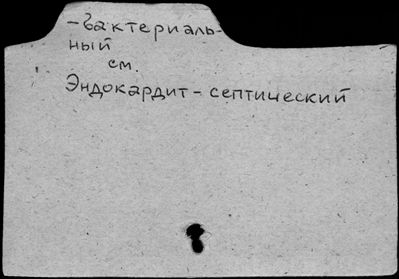 - бактериаль-
ный
см.
Эндокардит - септический